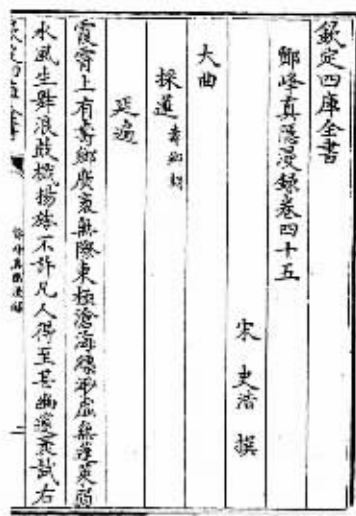 欽定四庫全書
鄮峰真隱漫錄卷四十五
宋 史浩 撰
大曲
採蓮 壽鄉詞
延遍
霞霄上有壽鄉廣袤無際東極滄海縹緲虛無蓬萊弱
水風生屢浪鼓檝揚旌不許凡人得至甚幽邃試右